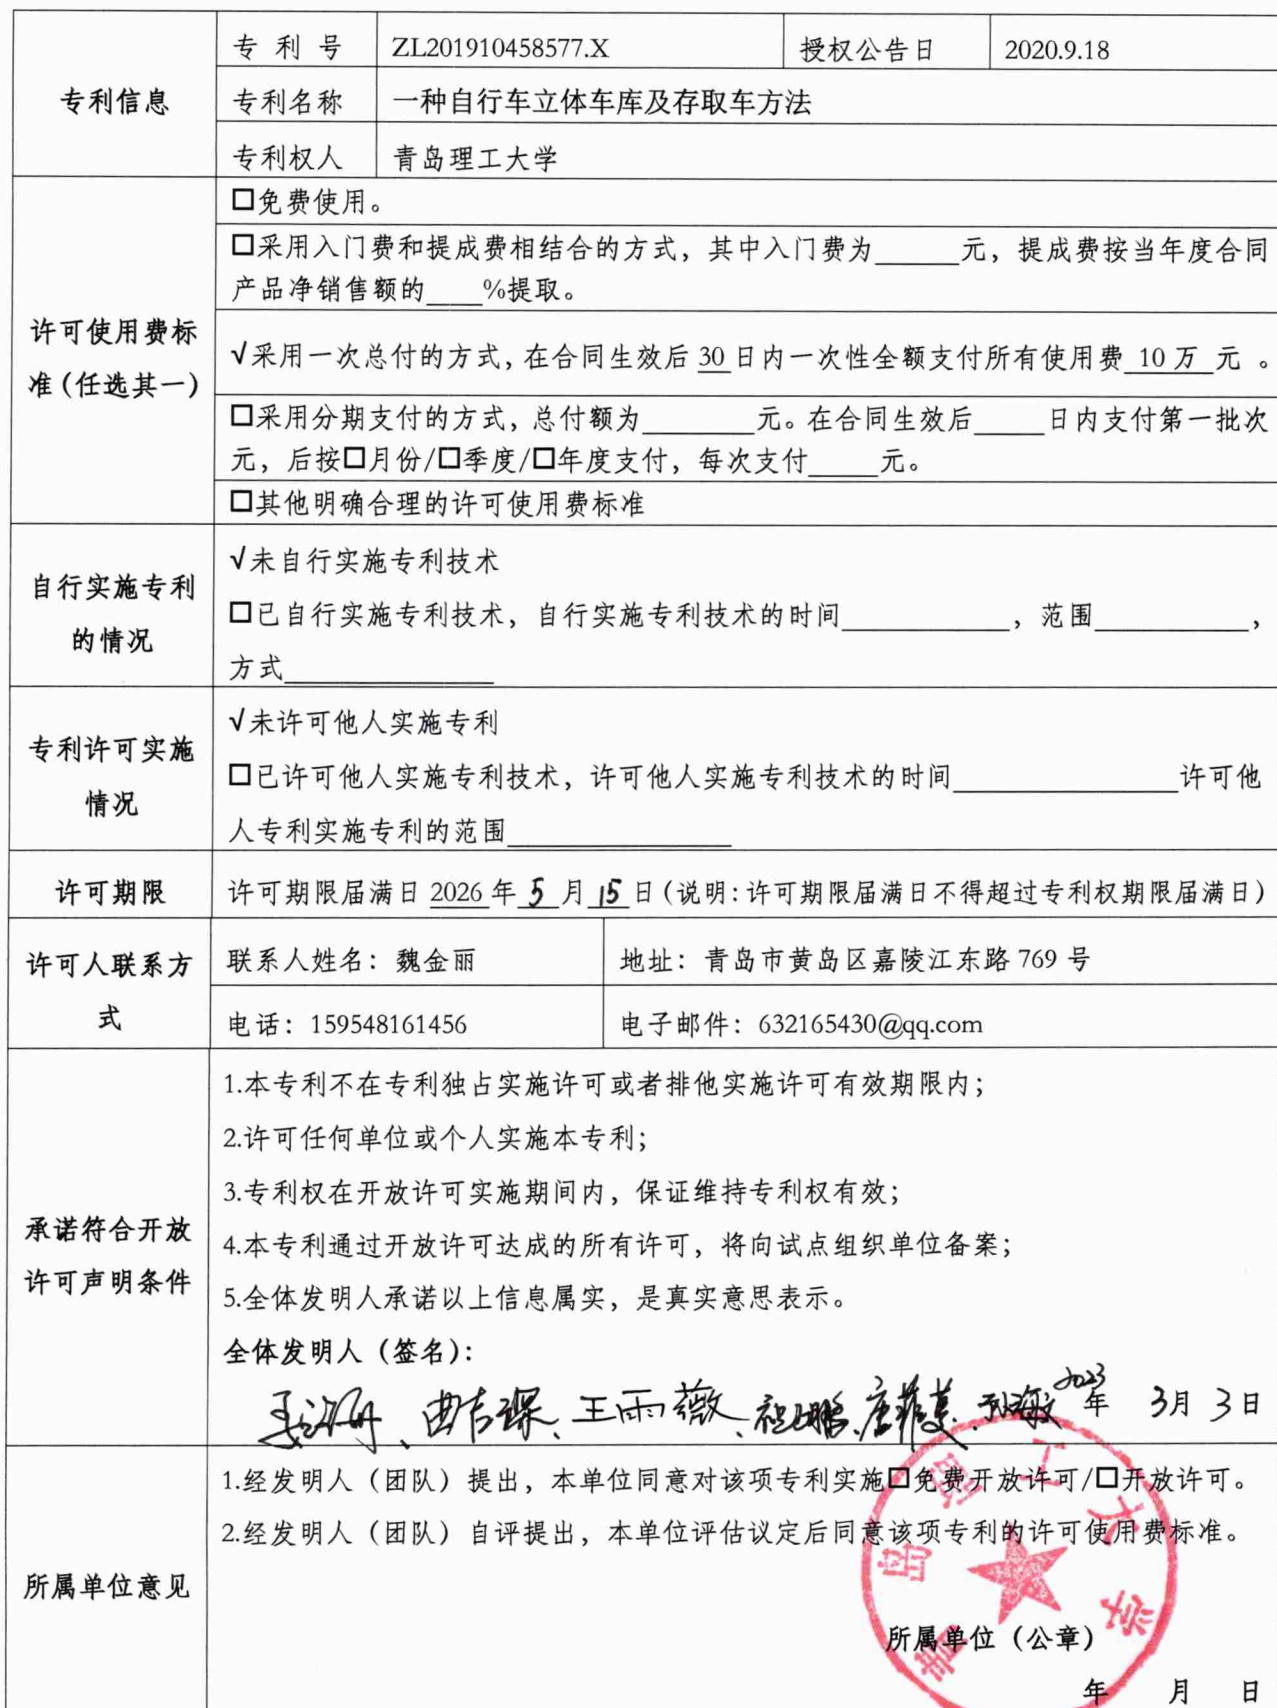 专利信息
专 利 号 ZL201910458577.X 授权公告日 2020.9.18
专利名称 一种自行车立体车库及存取车方法
专利权人 青岛理工大学
许可使用费标
准(任选其一)
□免费使用。
□采用入门费和提成费相结合的方式，其中入门费为______元，提成费按当年度合同
产品净销售额的____%提取。
√采用一次总付的方式，在合同生效后 30 日内一次性全额支付所有使用费 10 万 元 。
□采用分期支付的方式，总付额为________元。在合同生效后_____日内支付第一批次
元，后按□月份/□季度/□年度支付，每次支付_____元。
□其他明确合理的许可使用费标准
自行实施专利
的情况
√未自行实施专利技术
□已自行实施专利技术，自行实施专利技术的时间____________，范围___________，
方式_______________
专利许可实施
情况
√未许可他人实施专利
□已许可他人实施专利技术，许可他人实施专利技术的时间________________许可他
人专利实施专利的范围________________
许可期限
许可期限届满日 2026 年 5 月 15 日(说明:许可期限届满日不得超过专利权期限届满日)
许可人联系方
式
联系人姓名：魏金丽 地址：青岛市黄岛区嘉陵江东路 769 号
电话：159548161456 电子邮件：632165430@qq.com
承诺符合开放
许可声明条件
1.本专利不在专利独占实施许可或者排他实施许可有效期限内；
2.许可任何单位或个人实施本专利；
3.专利权在开放许可实施期间内，保证维持专利权有效；
4.本专利通过开放许可达成的所有许可，将向试点组织单位备案；
5.全体发明人承诺以上信息属实，是真实意思表示。
全体发明人（签名）：
王雨薇 2023年 3月 3日
所属单位意见
1.经发明人（团队）提出，本单位同意对该项专利实施□免费开放许可/□开放许可。
2.经发明人（团队）自评提出，本单位评估议定后同意该项专利的许可使用费标准。
青岛理工大学
所属单位（公章）
年 月 日